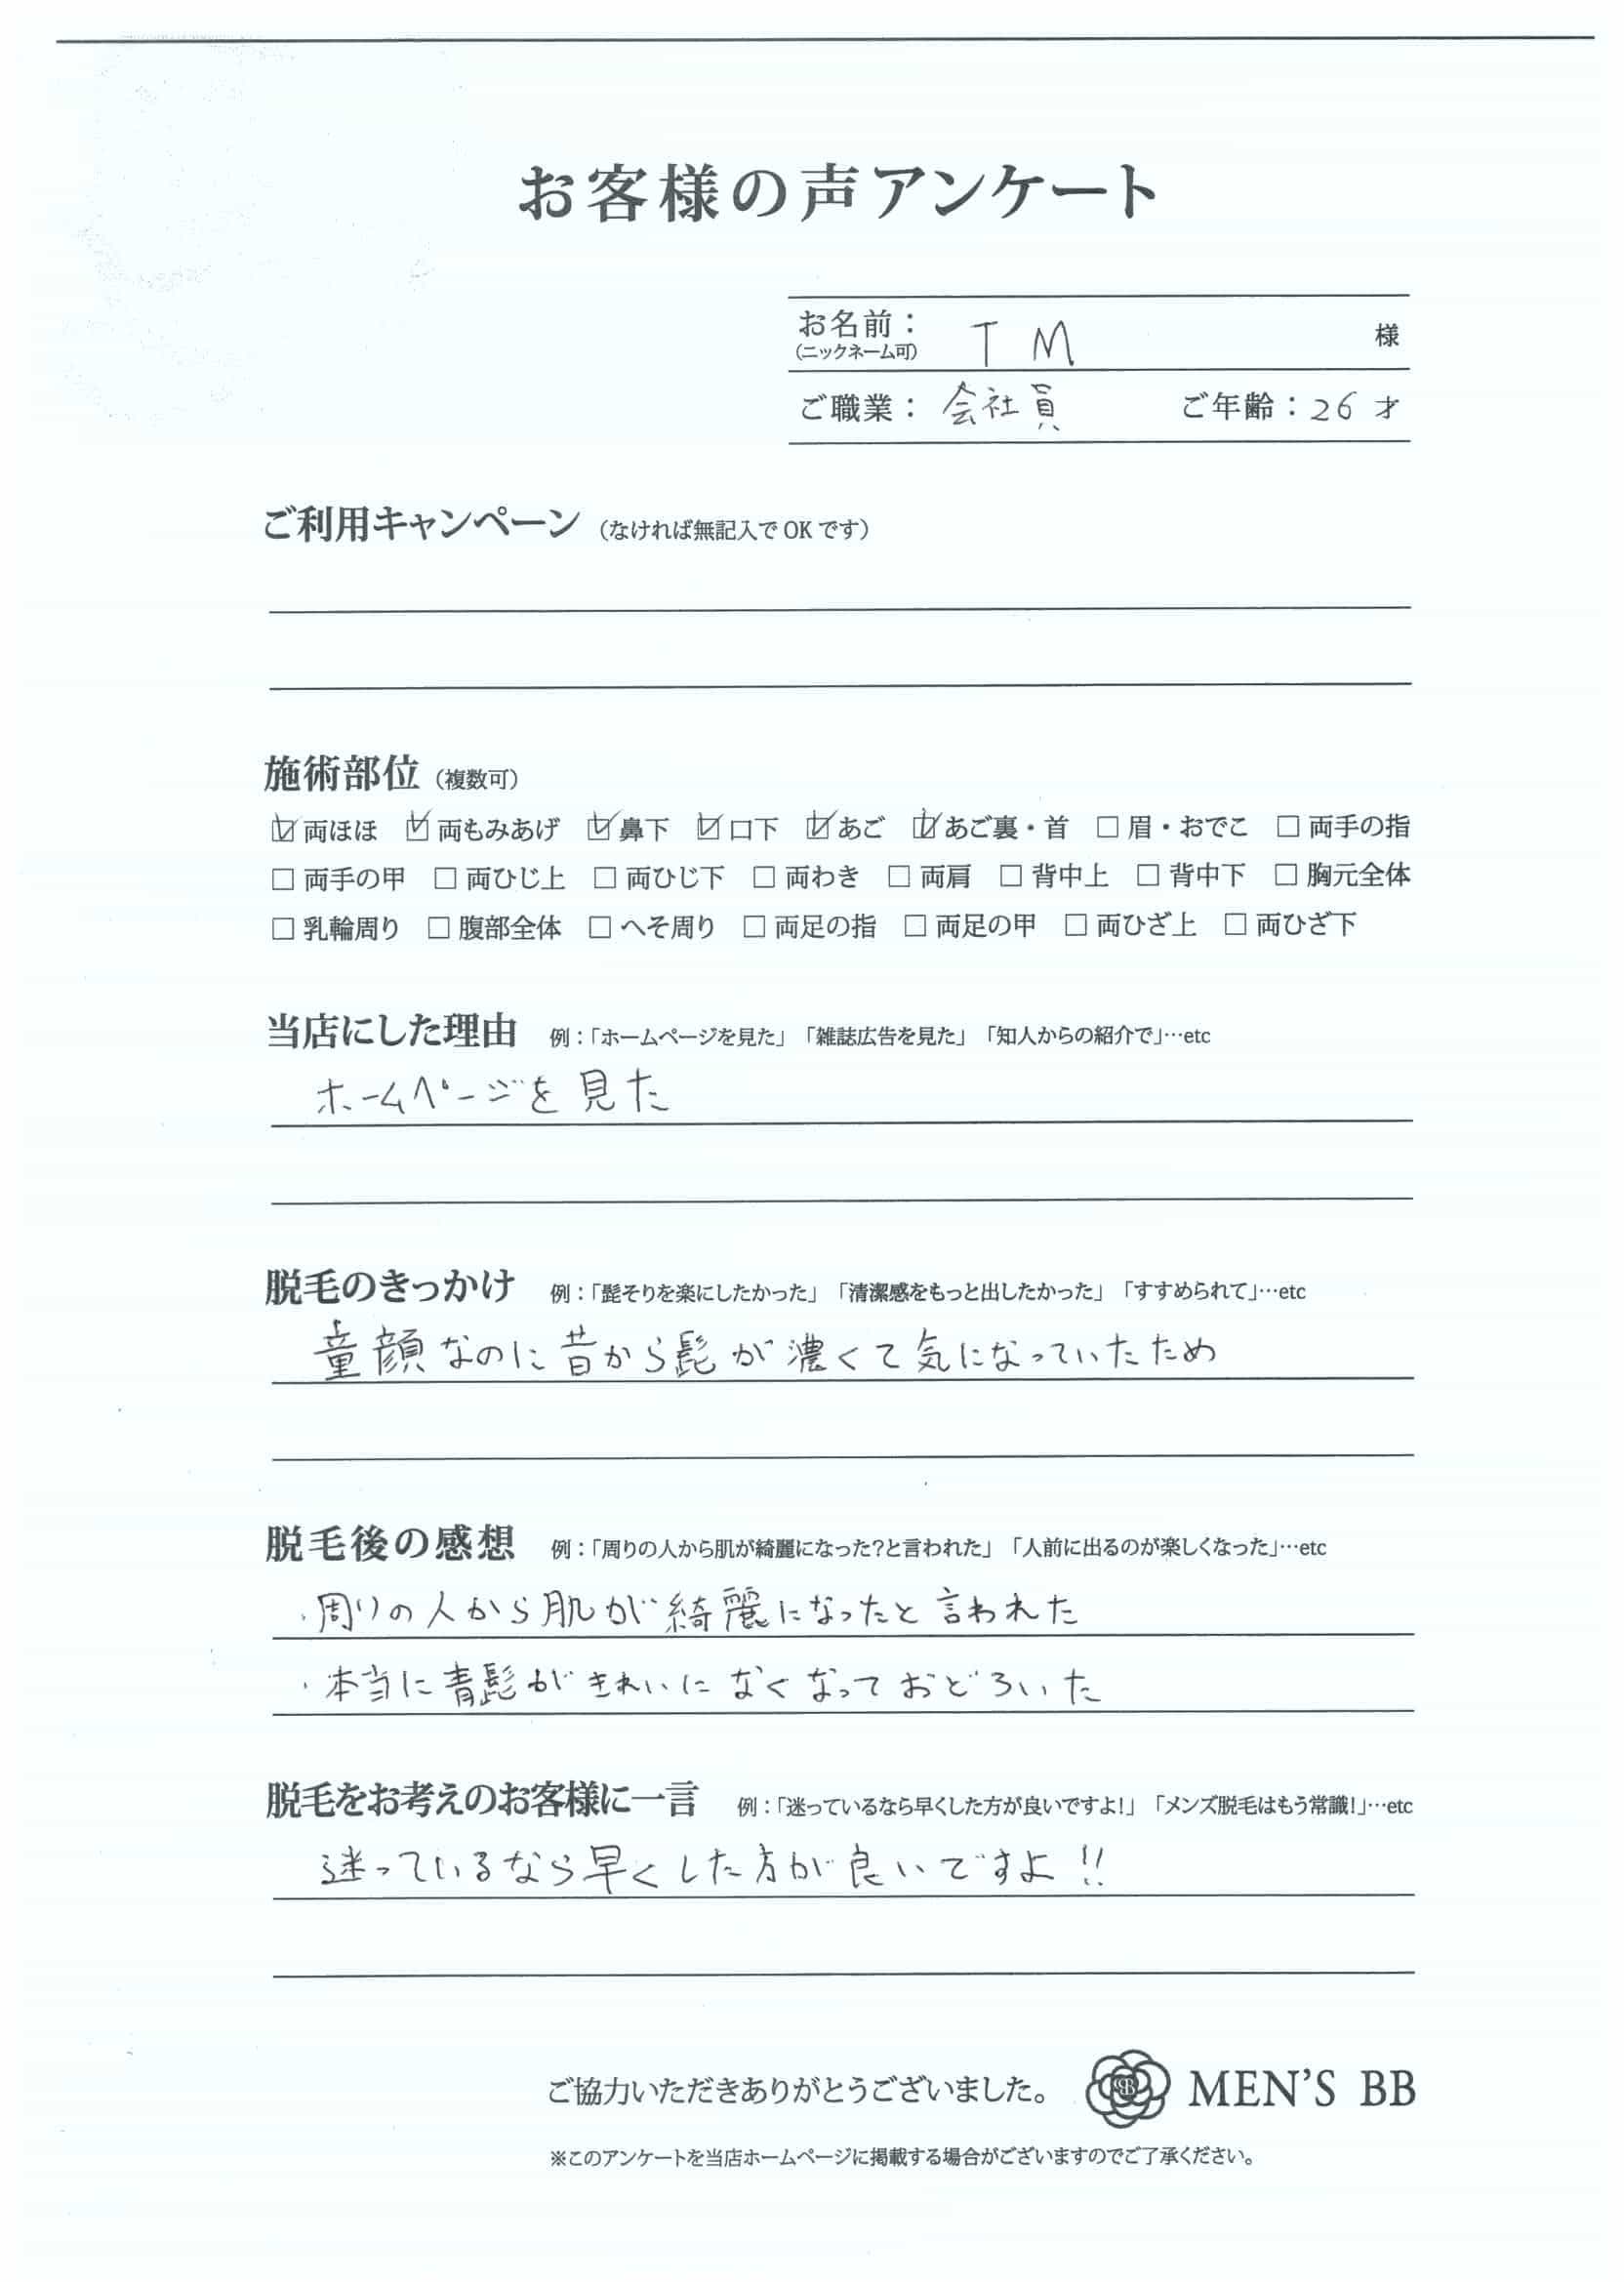 お客様の声アンケート
お名前： T M 様
（ニックネーム可）
ご職業： 会社員 ご年齢：26 才
ご利用キャンペーン （なければ無記入で OK です）
施術部位 （複数可）
☑ 両ほほ ☑ 両もみあげ ☑ 鼻下 ☑ 口下 ☑ あご ☑ あご裏・首 □ 眉・おでこ □ 両手の指
□ 両手の甲 □ 両ひじ上 □ 両ひじ下 □ 両わき □ 両肩 □ 背中上 □ 背中下 □ 胸元全体
□ 乳輪周り □ 腹部全体 □ へそ周り □ 両足の指 □ 両足の甲 □ 両ひざ上 □ 両ひざ下
当店にした理由 例：「ホームページを見た」「雑誌広告を見た」「知人からの紹介で」…etc
ホームページを見た
脱毛のきっかけ 例：「髭そりを楽にしたかった」「清潔感をもっと出したかった」「すすめられて」…etc
童顔なのに昔から髭が濃くて気になっていたため
脱毛後の感想 例：「周りの人から肌が綺麗になった?と言われた」「人前に出るのが楽しくなった」…etc
・周りの人から肌が綺麗になったと言われた
・本当に青髭がきれいになくなっておどろいた
脱毛をお考えのお客様に一言 例：「迷っているなら早くした方が良いですよ!」「メンズ脱毛はもう常識!」…etc
迷っているなら早くした方が良いですよ!!
ご協力いただきありがとうございました。 BB MEN'S BB
※このアンケートを当店ホームページに掲載する場合がございますのでご了承ください。